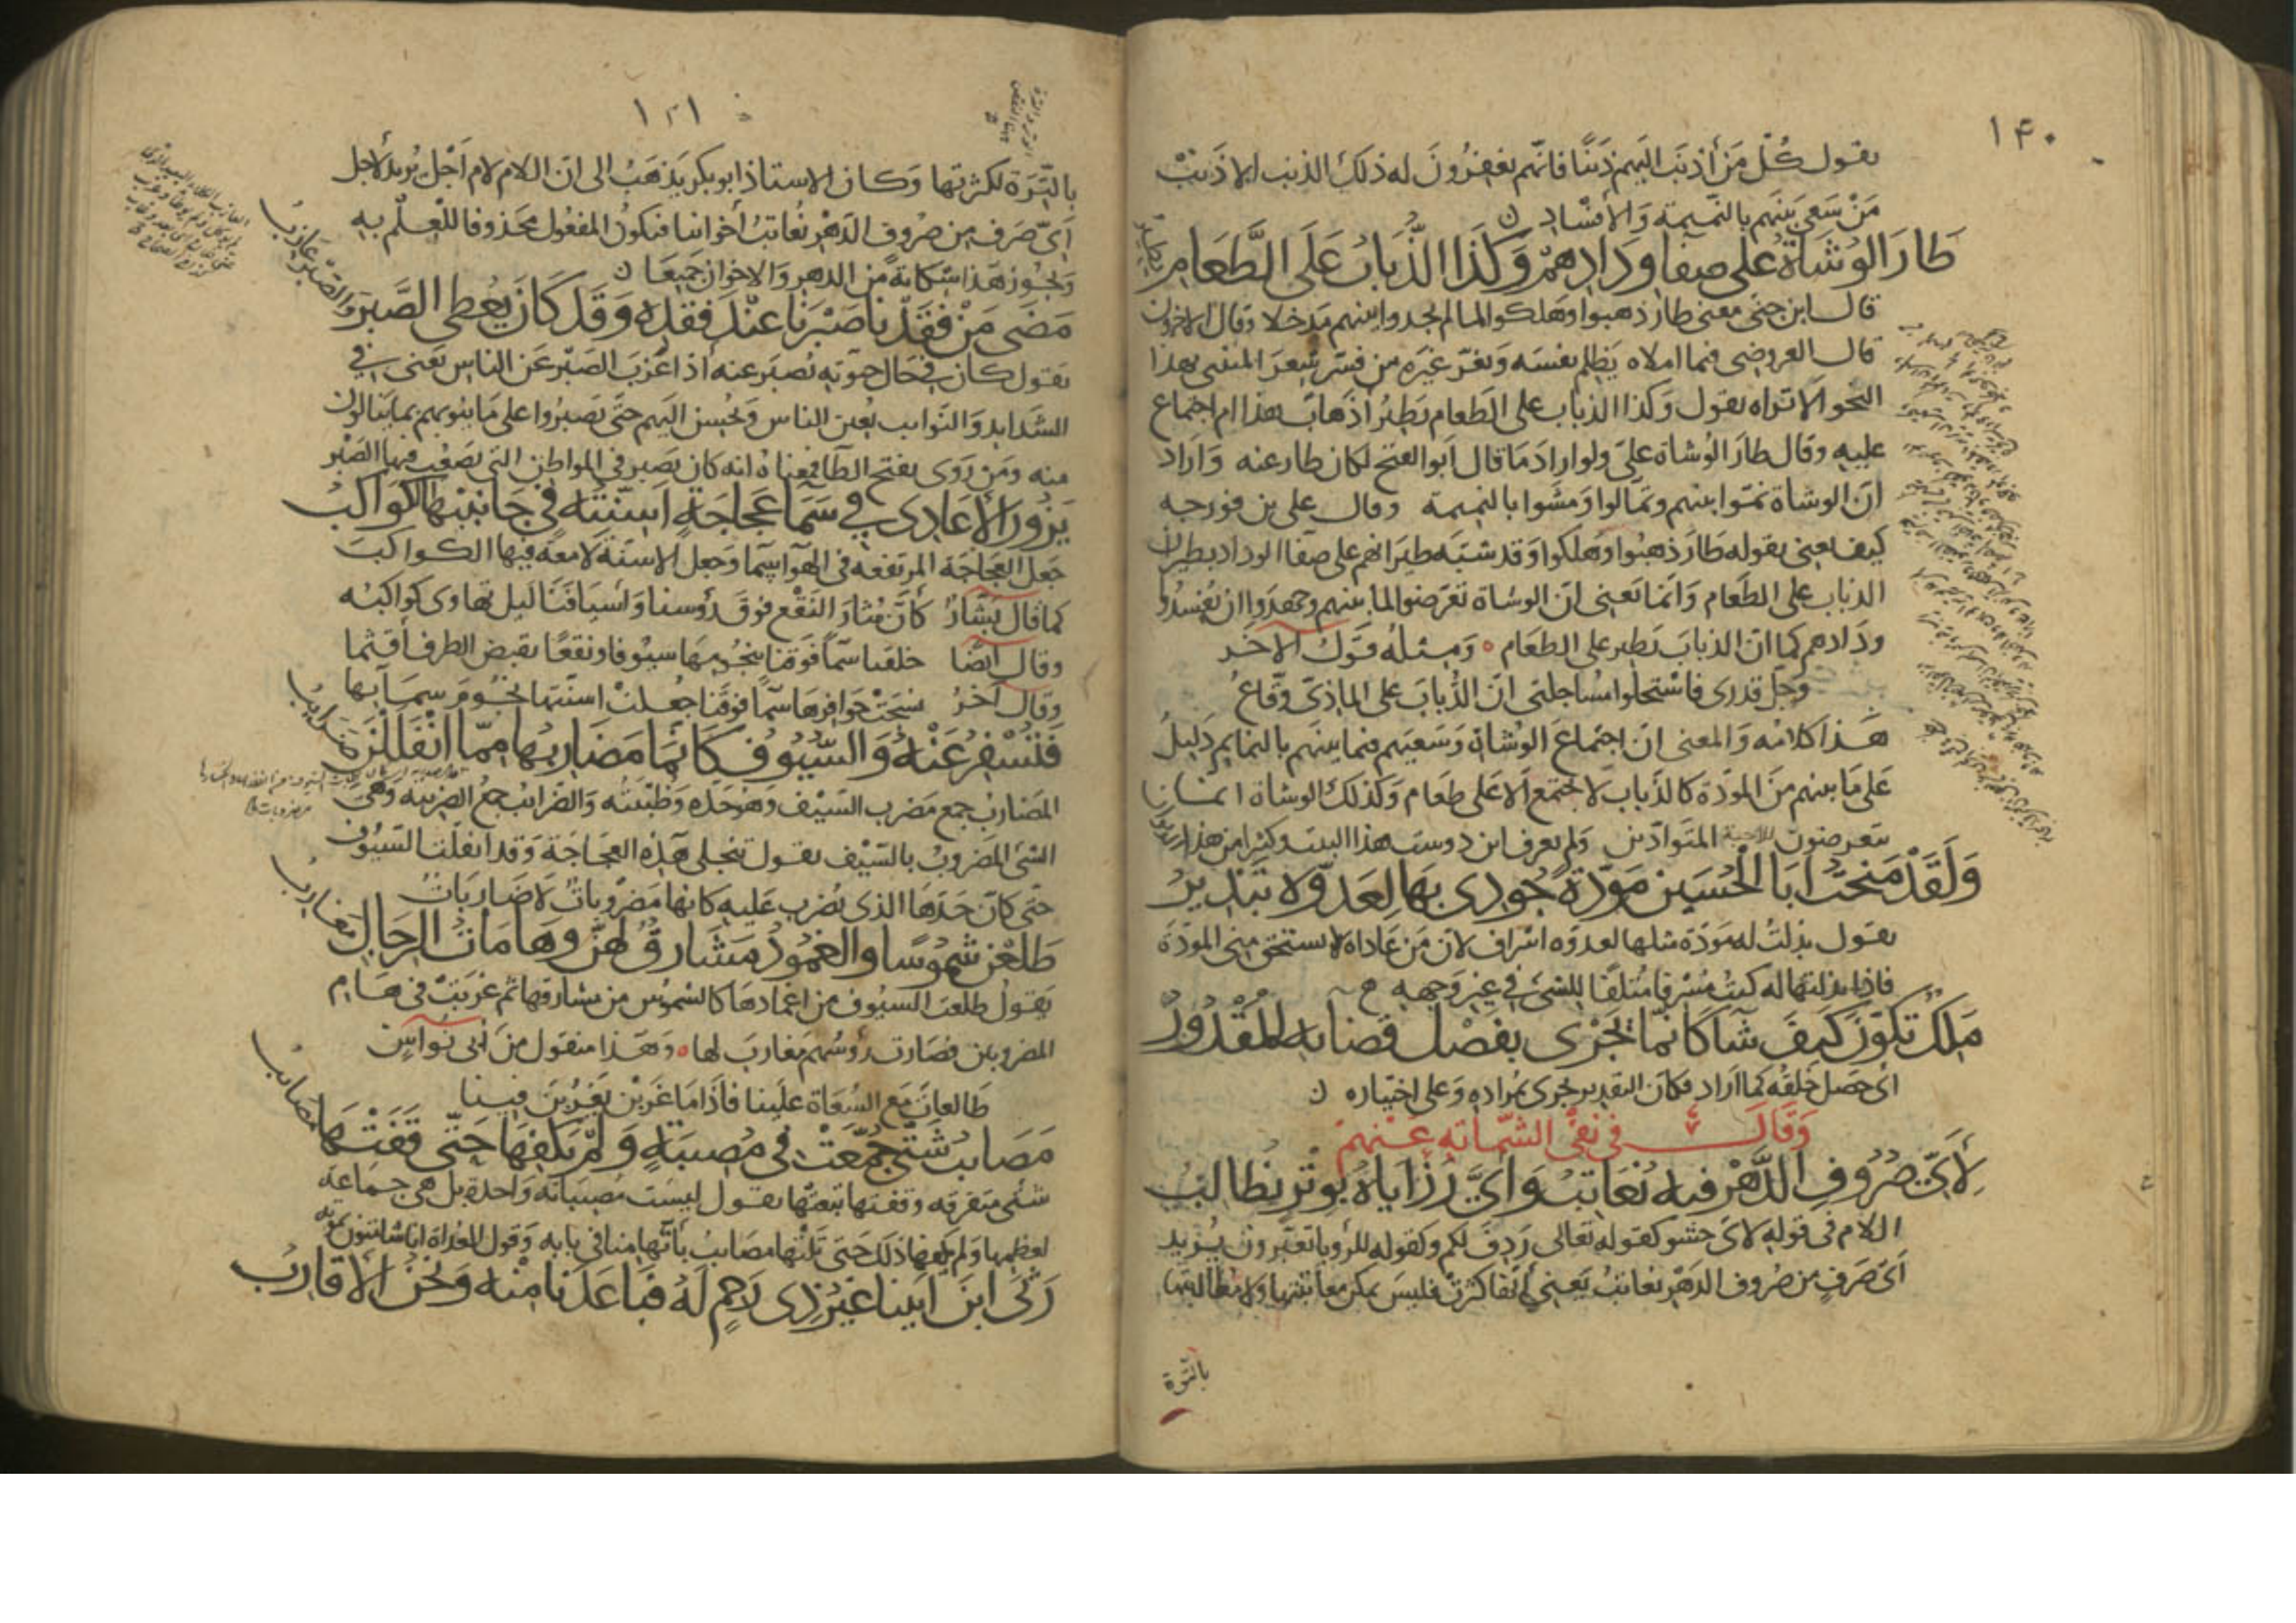 ١٤٠
يقول كُلّ مَن أذنبَ اليَهم ذَنبًا فانّهم يغفِرُونَ له ذلكَ الذنب الا ذَنبَ
مَنْ سَعَى بَينَهم بالنَّميمة وَالأفسَادِ
طَارَ الوُشَاةُ عَلى صَفَا وِدَادِهِمْ وَكَذَا الذُّبَابُ عَلَى الطَّعَامِ يَطيرُ
قال ابن جنّى معنى طار ذهبوا وهلكوا لما لم يجدوا بينهم مَدخلا وقال
قال العروضى فيما املاه يَظلم نفسَه وَيغرّ غيرَه مِن فسّر شِعرَ المتنبى بهذا
النحو الا تراه يقول وَكذا الذباب على الطعام يَطيرُ أذَهابٌ هذا ام اجتماع
عليه وقال طارَ الوُشاة على ولو ارادَ مَا قال اَبو الفتح لكان طار عنه وَاراد
انّ الوشاة نمّوا بينهم وتمالوا ومَشَوا بالنميمة وقال على بن فورجه
كيف يعنى بقوله طَارَ ذهبُوا وهَلكوا وَقد شبّه طيَرانهم على صَفا الوداد بطيران
الذباب على الطَعام وَانما يَعنى انّ الوشاة تعَرضوا لما بينهم وجهدَوا ان يُفسدُوا
ودَادهم كما انّ الذبابَ يَطير على الطعَام ٥ وَمِثلهُ قوَل الآخَر
وَجلّ قدرى فاستحلوا مساجلتى انّ الذُبابَ على الماذىّ وقّاعُ
هَذا كلامُه وَالمعنى انّ اجتماعَ الوُشاة وَسَعيَهم فيما بينَهم بالنمايم دَليلٌ
عَلى مَا بينهم مَنَ الموَدّة كالذُبابِ لا يجتمع اَلا عَلى طعَام وَكذلكَ الوشاة انما
يتعرضون للاحبة المتَوادّين وَلم يعرف ابن دوست هذا البيت وكثيرا من هذا
وَلَقَدْ مَنحْتُ اَبَا الْحُسَينِ مَوَدّةً جُودِى بِهَا لِعَدُوّهِ تَبْذِيرُ
يقول بذلتُ له مَوَدّةً مثلها لعدوّه اسراف لانّ مَن عَاداه لا يستحق منى المودّة
فاذا بذلتها له كنتُ مُسْرفا مُتلفًا للشئِ فى غير وَجهه
مَلِكٌ تَكَوَّنَ كَيفَ شَآ كَانَّمَا يَجْرى بِفَصْلِ قَضَائِهِ الْمَقْدُورُ
اى حَصَلَ خَلقُه كما اَراد فكانّ التقدير يجرى بمُراده وَعلى اختياره
وَقَالَ فى نفى الشّمَاتةِ عَنهُمْ
لأيِّ صُرُوفِ الدَّهْرِ فيهِ نُعَاتِبُ وَاَيَّ رَزَايَاهُ بِوِتْرٍ نُطَالِبُ
اللام فى قوله لاىّ حشو كقوله تعالى رَدِفَ لكم وكقوله للرؤيا تعبُرون يُريد
اَىّ صَرفٍ مِن صُروف الدَهْر نعاتبُ يَعنى انها كثرَت فليسَ يمكن معاتبتها ولا مُطالبتها
بالتّرَة
١٤١
بالتِّرَة لكثرتها وَكان الاستاذ ابو بكر يَذهَبُ الى انّ اللام لام اَجْل يُريد لاجل
اَىِّ صَرف مِن صُروف الدَهْر نُعاتبُ أخواننا فيكونُ المفعُول محذوفا للعِلْم به
وَيجوز هَذا شكاية مَن الدهر وَالاخوان جَميعَا
مَضَى مَنْ فَقَدْنَا صَبْرَنَا عِنْدَ فَقْدِهِ وَقَدْ كَانَ يُعْطِى الصَّبرَ وَالصَّبْرُ عَازِبُ
يقول كان فى حَال حيوته نُصبَر عنه أذا عَزَبَ الصَبْر عَن الناس يَعنى فى
الشَدايد وَالنَوايب يُعين الناس وَيحُسن اليَهم حتّى يَصبرُوا على مَا ينُوبهم بما يَنالون
منه ومَن رَوى بفتح الطَآ فمعناهُ انه كان يَصبر فى المواطن التى يَصعُب فيها الصَبْر
يَزُورُ الأَعَادِى فى سَمَآ عَجَاجَةٍ اَسِنَّتُه فى جَانِبَيْهَا الكَوَاكِبُ
جَعل العَجَاجَة المرتفعَه فى الهَوآ سَمآ وَجعل الاسنّةَ لامعَةً فيها الكواكبَ
كما قال بَشّارٌ كأنّ مُثارَ النقْع فوقَ رؤسنا وَأسيَافَنَا ليل تهاوى كواكبُه
وقال اَيضًا خلقنا سَمآ فوقنا بنجُومهَا سيُوفا ونقعًا يقبض الطرف أقتما
وقال آخرُ نسَجَت حَوافرهَا سَمآ فوقَنا جُعلتْ اسنّتها نجُومَ سمَآيها
فَتُسْفِرُ عَنْهُ وَالسُّيُوفُ كَانَّمَا مَضَارِبُهَا مِمّا انْفَلَلْنَ ضَرايبُ
المَضاربُ جمع مَضرب السَيْف وَهو حَدّه وَظبَتُه وَالضَرايبُ جمعُ الضَريبة وَهى
الشئ المضروبُ بالسَيْف يقول تنجلى هَذه العَجَاجَة وَقد انفلّت السَيُوف
حتى كأنّ حَدَّهَا الذى يُضرب عَليه كانها مَضرُوباتٌ لَا ضَاربَاتٌ
طَلَعْنَ شُمُوسًا وَالغُمُودُ مَشَارِقٌ لَهُنَّ وَهَامَاتُ الرِّجَالِ مَغَارِبُ
يَقولُ طلعَت السيُوف من اغمادهَا كالشموُس من مشارقها ثم غرَبَتْ فى هَام
المضروبين فصَارت رؤسُهم مَغاربَ لها ٥ وَهَذا منقول مَن اَبى نوَاس
طَالعاتٌ مَع السُقَاة علَينا فأذَا مَا غَرَبْنَ يَغرُبنَ فينا
مَصَائبُ شَتَّى جُمِّعَتْ فى مُصِيبَةٍ وَلَمْ يَكْفِهَا حَتّى قَفَتْهَا مَصَائبُ
شتّى متفرقه وقفتها تبعتْها يقول ليسَت مُصيبَاته وَاحدة بل هى جَمَاعَة
لعظِمها وَلم يكفها ذلكَ حَتى تَلتها مصَايبُ
رَثَى ابنَ اَبِينا غَيْرُ ذِى رَحِمٍ لَهُ فَبَاعَدَنَا مِنْهُ وَنحْنُ الأَقَارِبُ